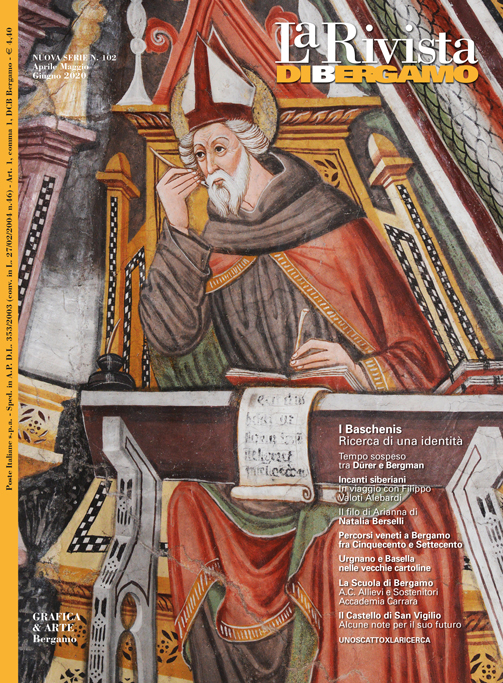 Poste Italiane s.p.a. - Sped. in A.P. D.L. 353/2003 (conv. in L. 27/02/2004 n.46) - Art. 1, comma 1, DCB Bergamo - € 4,40
NUOVA SERIE N. 102
Aprile Maggio
Giugno 2020
La Rivista
DI BERGAMO
I Baschenis
Ricerca di una identità
Tempo sospeso
tra Dürer e Bergman
Incanti siberiani
In viaggio con Filippo
Valoti Alebardi
Il filo di Arianna di
Natalia Berselli
Percorsi veneti a Bergamo
fra Cinquecento e Settecento
Urgnano e Basella
nelle vecchie cartoline
La Scuola di Bergamo
A.C. Allievi e Sostenitori
Accademia Carrara
Il Castello di San Vigilio
Alcune note per il suo futuro
UNOSCATTOXLARICERCA
GRAFICA
& ARTE
Bergamo